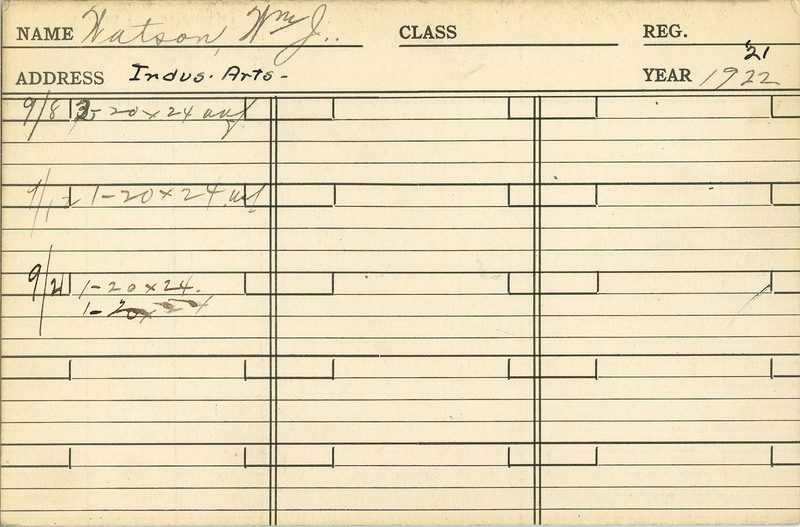 NAME Watson, Wm J.. CLASS REG.
ADDRESS Indus. Arts- YEAR 1922 '21
9/8 3- 20 x 24
9/12 1-20 x 24
9/21 1-20 x 24.
1-20x24